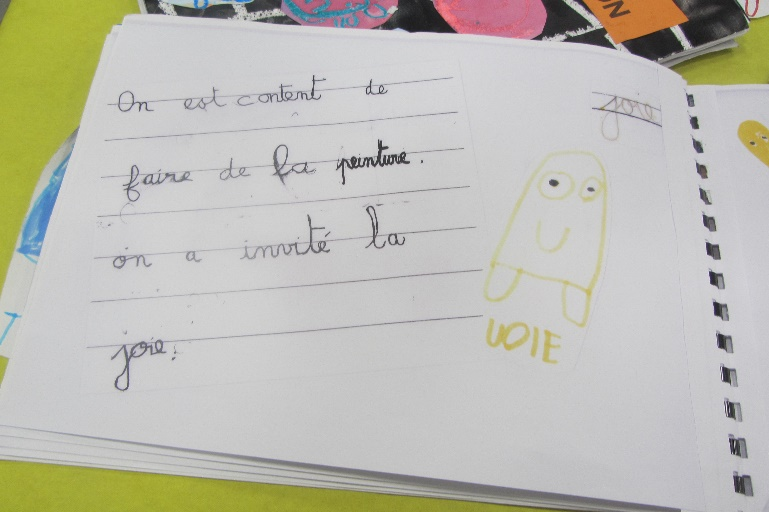 On est content de
faire de la peinture.
on a invité la
joie.
joie
UOIE